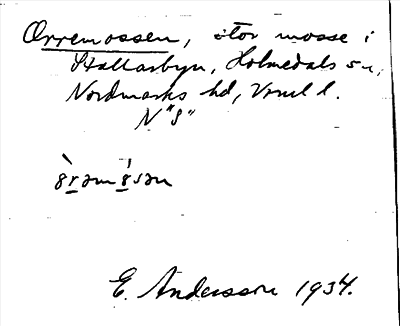 Orremossen, stor mosse i
Stallarbyn, Holmedals sn,
Nordmarks hd, Vrml l.
N "S"
E. Andersson 1934.